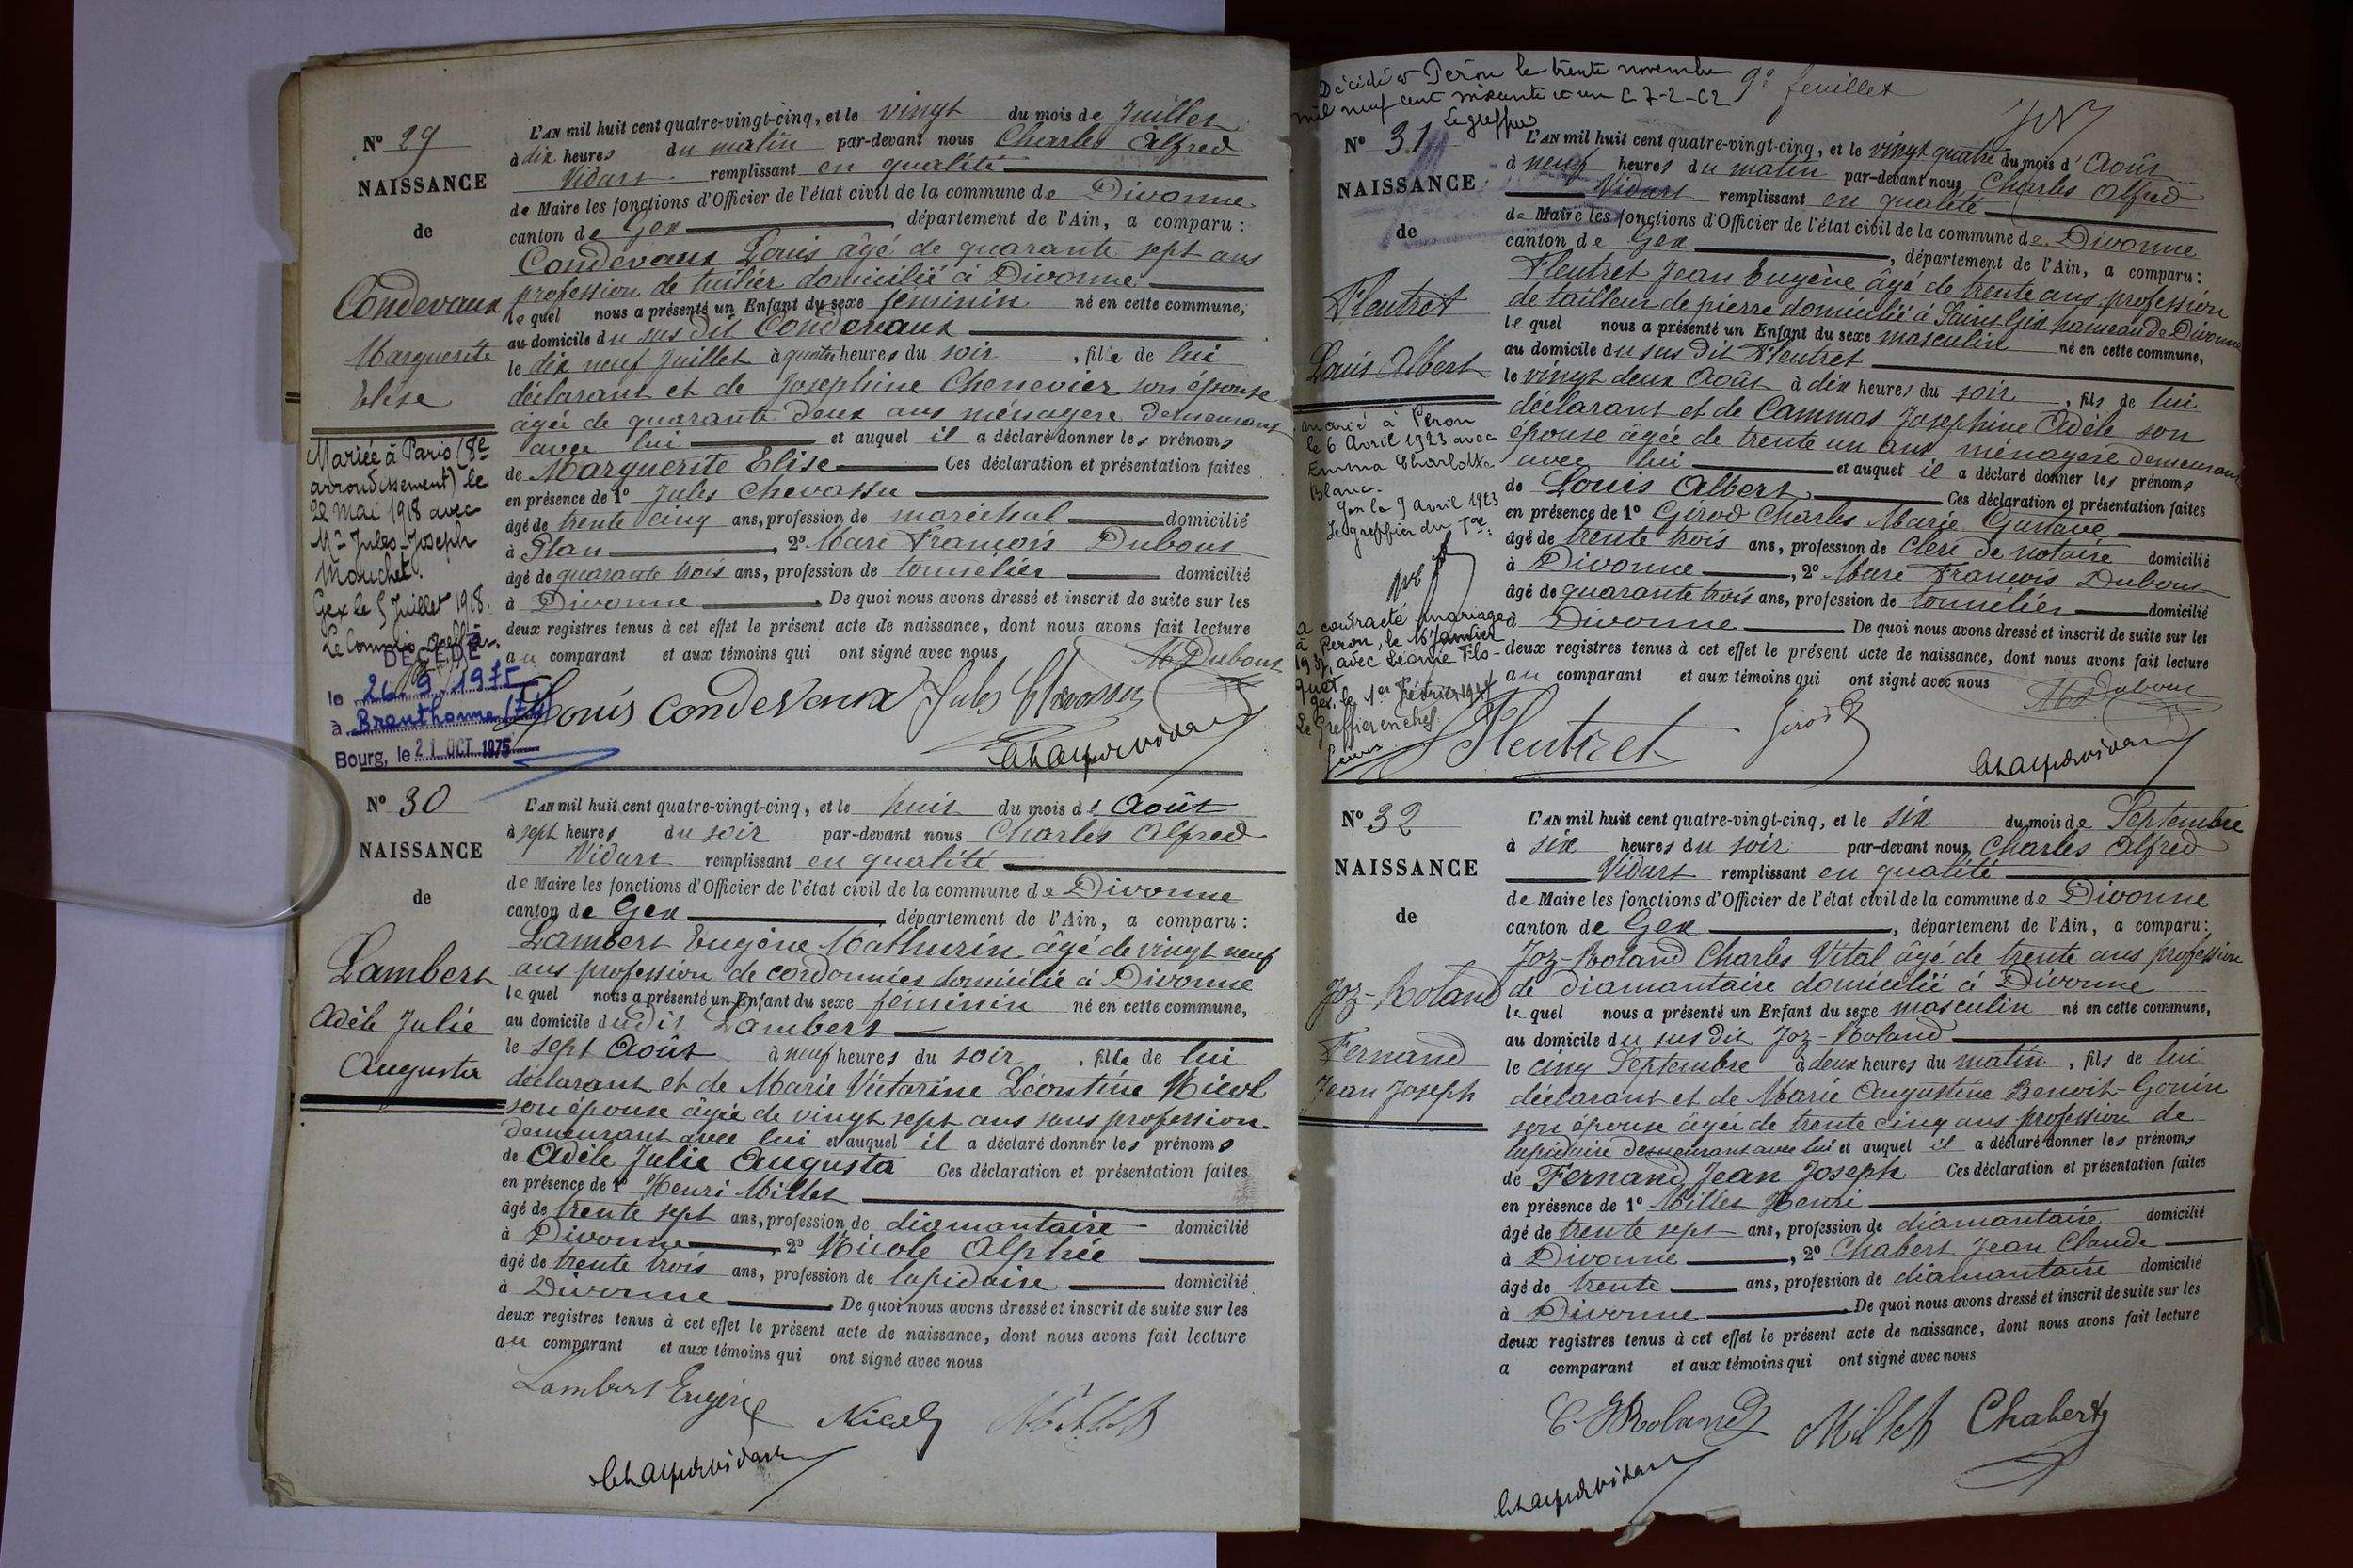 Nº 29
NAISSANCE
de
Condevaux
Marguerite
Elise
Mariée à Paris (8e
arrondissement) le
22 Mai 1918 avec
Mr Jules-Joseph
Mouchet.
Gex le 5 Juillet 1918.
Le Commis-Greffier,
DÉCÉDÉ
le 26.9.1975
à Brenthonne (74)
Bourg, le 21 OCT 1975
L'AN mil huit cent quatre-vingt-cinq, et le vingt du mois de Juillet
à dix heures du matin par-devant nous Charles Alfred
Vidart remplissant en qualité
de Maire les fonctions d'Officier de l'état civil de la commune de Divonne
canton de Gex département de l'Ain, a comparu :
Condevaux Louis âgé de quarante sept ans
profession de tuilier domicilié à Divonne
lequel nous a présenté un Enfant du sexe feminin né en cette commune,
au domicile du sus dit Condevaux
le dix neuf Juillet à quatre heures du soir, fille de lui
déclarant et de Josephine Chenevier son épouse
âgée de quarante deux ans ménagere demeurant
avec lui et auquel il a déclaré donner les prénoms
de Marguerite Elise Ces déclaration et présentation faites
en présence de 1º Jules Chevassu
âgé de trente cinq ans, profession de maréchal domicilié
à Plan, 2º Marc François Dubout
âgé de quarante trois ans, profession de tonnelier domicilié
à Divonne. De quoi nous avons dressé et inscrit de suite sur les
deux registres tenus à cet effet le présent acte de naissance, dont nous avons fait lecture
au comparant et aux témoins qui ont signé avec nous
M Dubout
Louis Condevaux Jules Chevassu
Ch Alfred Vidart
Nº 30
NAISSANCE
de
Lambert
Adèle Julie
Augusta
L'AN mil huit cent quatre-vingt-cinq, et le huit du mois de Août
à sept heures du soir par-devant nous Charles Alfred
Vidart remplissant en qualité
de Maire les fonctions d'Officier de l'état civil de la commune de Divonne
canton de Gex département de l'Ain, a comparu :
Lambert Eugène Mathurin âgé de vingt neuf
ans profession de cordonnier domicilié à Divonne
lequel nous a présenté un Enfant du sexe féminin né en cette commune,
au domicile dudit Lambert
le sept Août à neuf heures du soir, fille de lui
déclarant et de Marie Victorine Léontine Nicol
son épouse âgée de vingt sept ans sans profession
demeurant avec lui et auquel il a déclaré donner les prénoms
de Adèle Julie Augusta Ces déclaration et présentation faites
en présence de 1º Henri Millet
âgé de trente sept ans, profession de diamantaire domicilié
à Divonne 2º Nicole Alphée
âgé de trente trois ans, profession de lapidaire domicilié
à Divonne. De quoi nous avons dressé et inscrit de suite sur les
deux registres tenus à cet effet le présent acte de naissance, dont nous avons fait lecture
au comparant et aux témoins qui ont signé avec nous
Lambert Eugène Nicol Millet
Ch Alfred Vidart
Décédé à Péron le trente novembre
mil neuf cent soixante et un 7-2-62
Le greffier
9e feuillet
Nº 31
NAISSANCE
de
Fleutret
Louis Albert
marié à Péron
le 6 Avril 1923 avec
Emma Charlotte
Blanc.
Gex le 9 Avril 1923
Le greffier du Tal.
a contracté mariage à
Péron, le 16 Janvier
1937, avec Léonie Fils-
Gex, le 1er Février 1937
Le Greffier en chef
L'AN mil huit cent quatre-vingt-cinq, et le vingt quatre du mois d'Août
à neuf heures du matin par-devant nous Charles Alfred
Vidart remplissant en qualité
de Maire les fonctions d'Officier de l'état civil de la commune de Divonne
canton de Gex, département de l'Ain, a comparu :
Fleutret Jean Eugène âgé de trente ans profession
de tailleur de pierre domicilié à Saint Gix hameau de Divonne
lequel nous a présenté un Enfant du sexe masculin né en cette commune,
au domicile du sus dit Fleutret
le vingt deux Août à dix heures du soir, fils de lui
déclarant et de Cammas Josephine Adèle son
épouse âgée de trente un ans ménagère demeurant
avec lui et auquel il a déclaré donner les prénoms
de Louis Albert. Ces déclaration et présentation faites
en présence de 1º Girod Charles Marie Gustave
âgé de trente trois ans, profession de clerc de notaire domicilié
à Divonne, 2º Marc François Dubout
âgé de quarante trois ans, profession de tonnelier domicilié
à Divonne De quoi nous avons dressé et inscrit de suite sur les
deux registres tenus à cet effet le présent acte de naissance, dont nous avons fait lecture
au comparant et aux témoins qui ont signé avec nous
M Dubout
Fleutret Girod
Ch Alfred Vidart
Nº 32
NAISSANCE
de
Joz-Roland
Fernand
Jean Joseph
L'AN mil huit cent quatre-vingt-cinq, et le six du mois de Septembre
à six heures du soir par-devant nous Charles Alfred
Vidart remplissant en qualité
de Maire les fonctions d'Officier de l'état civil de la commune de Divonne
canton de Gex, département de l'Ain, a comparu :
Joz-Roland Charles Vital âgé de trente ans profession
de diamantaire domicilié à Divonne
lequel nous a présenté un Enfant du sexe masculin né en cette commune,
au domicile du sus dit Joz-Roland
le cinq Septembre à deux heures du matin, fils de lui
déclarant et de Marie Augustine Benoit-Gonin
son épouse âgée de trente cinq ans profession de
lapidaire demeurant avec lui et auquel il a déclaré donner les prénoms
de Fernand Jean Joseph Ces déclaration et présentation faites
en présence de 1º Millet Henri
âgé de trente sept ans, profession de diamantaire domicilié
à Divonne, 2º Chabert Jean Claude
âgé de trente ans, profession de diamantaire domicilié
à Divonne. De quoi nous avons dressé et inscrit de suite sur les
deux registres tenus à cet effet le présent acte de naissance, dont nous avons fait lecture
a comparant et aux témoins qui ont signé avec nous
C. J Roland Millet Chabert
Ch Alfred Vidart